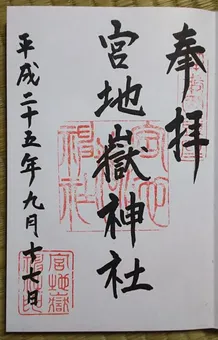 奉拝
宮地嶽神社
平成二十五年九月十七日
宮地嶽